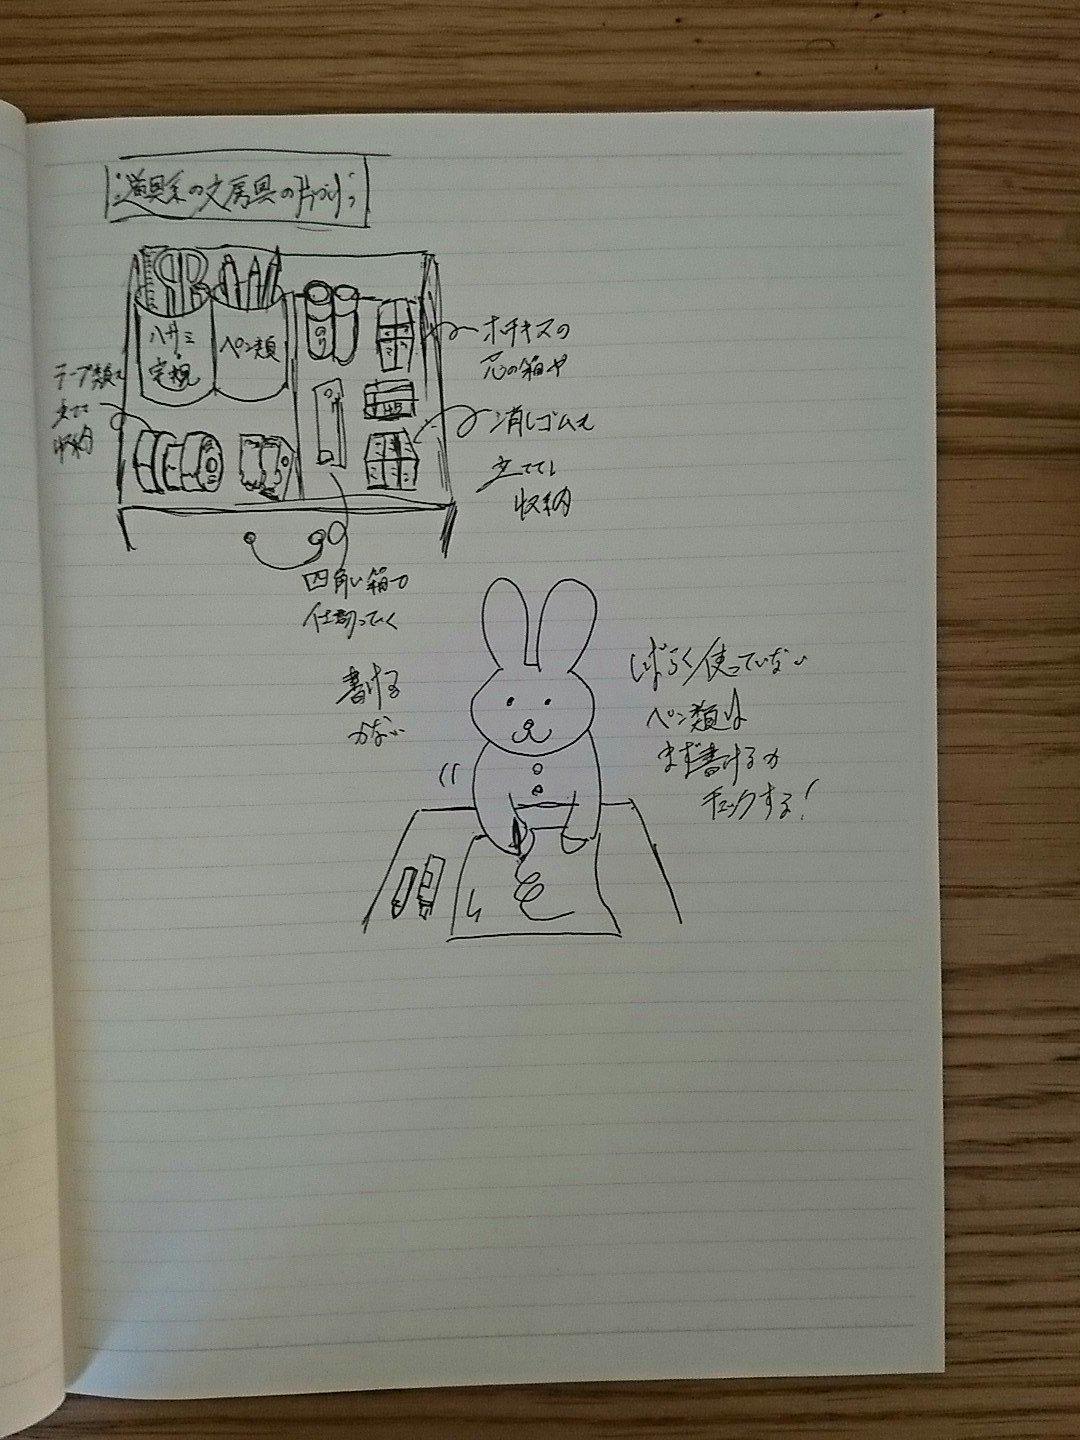 道具系の文房具の片づけ
ハサミ・
定規
ペン類
のり
テープ類も
立てて
収納
ホチキスの
芯の箱や
消しゴムも
立てて
収納
四角い箱で
仕切っていく
書ける
かな…
しばらく使っていない
ペン類は
まず書けるか
チェックする！